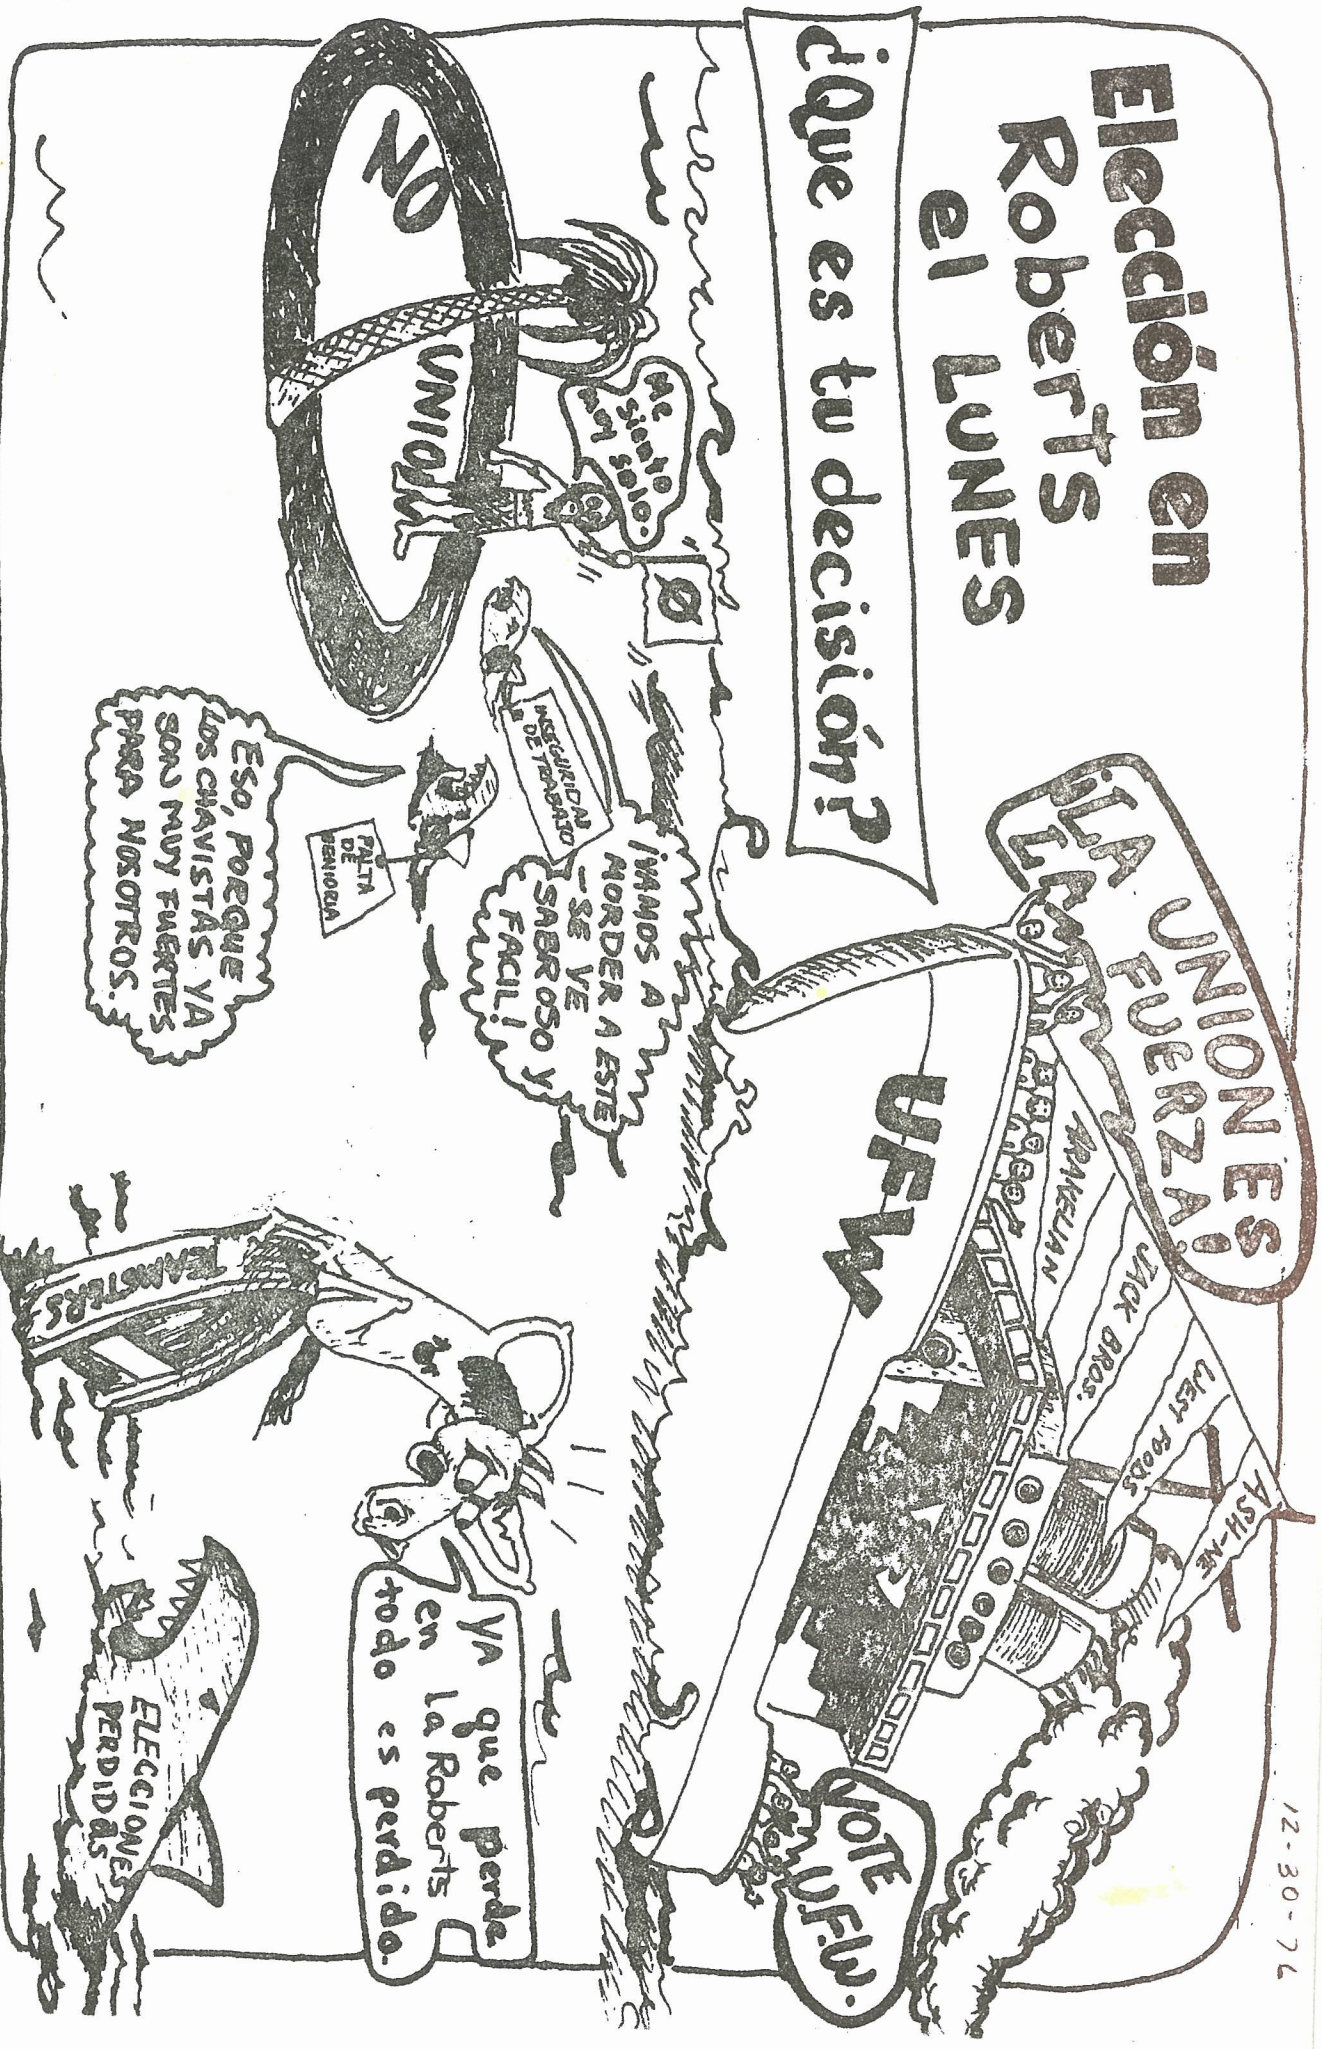 12-30-76
Elección en
Roberts
el LUNES
¿Que es tu decisión?
¡LA UNION ES
LA FUERZA!
ARAKELIAN
JACK BROS.
WEST FOODS
ASH-NE
UFW
VOTE
U.F.W.
NO
UNION
Me
siento
muy solo.
Ø
INSEGURIDAD
DE TRABAJO
¡VAMOS A
MORDER A ESTE
- SE VE
SABROSO Y
FACIL!
FALTA
DE
ESO, PORQUE
LOS CHAVISTAS YA
SON MUY FUERTES
PARA NOSOTROS.
TEAMSTERS
YA que perde
en la Roberts
todo es perdido.
ELECCIONES
PERDIDAS